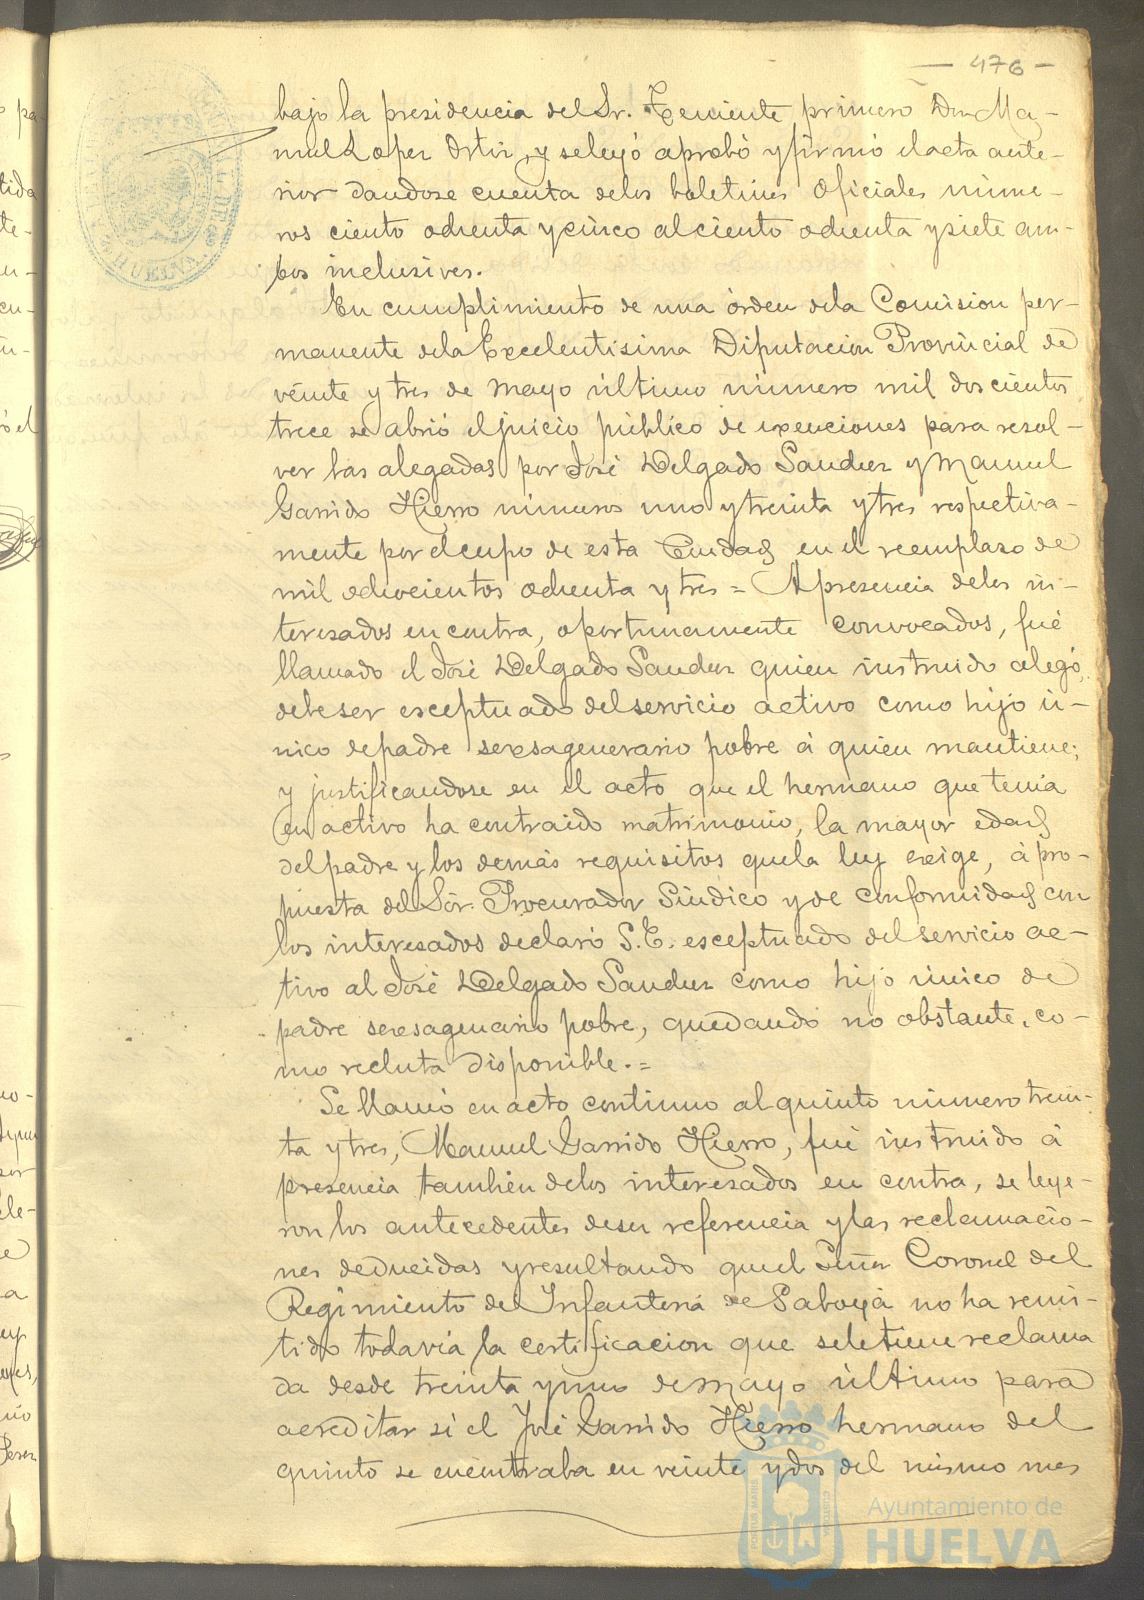 — 476 —
bajo la presidencia del Sr. Teniente primero Don Ma-
nuel Lopez Ortiz, y se leyó aprobó y firmó el acta ante-
rior dandose cuenta de los boletines oficiales núme-
ros ciento ochenta y cinco al ciento ochenta y siete am-
bos inclusives.
En cumplimiento de una órden de la Comision per-
manente de la Excelentísima Diputacion Provincial de
veinte y tres de Mayo último número mil doscientos
trece se abrió el juicio público de exenciones para resol-
ver las alegadas por José Delgado Sanchez y Manuel
Garrido Hierro números uno y treinta y tres respectiva-
mente por el cupo de esta Ciudad en el reemplazo de
mil ochocientos ochenta y tres = A presencia de los in-
teresados en contra, oportunamente convocados, fué
llamado el José Delgado Sanchez quien instruido alegó,
debe ser exceptuado del servicio activo como hijo ú-
nico de padre sexsagenerario pobre á quien mantiene;
y justificandose en el acto que el hermano que tenía
en activo ha contraido matrimonio, la mayor edad
del padre y los demás requisitos que la ley exige, á pro-
puesta del Sór. Procurador Síndico y de conformidad con
los interesados declaró S.E. esceptuado del servicio ac-
tivo al José Delgado Sanchez como hijo único de
padre sexsagenario pobre, quedando no obstante, co-
mo recluta disponible. =
Se llamó en acto continuo al quinto número trein-
ta y tres, Manuel Garrido Hierro, fué instruido á
presencia tambien de los interesados en contra, se leye-
ron los antecedentes de su referencia y las reclamacio-
nes deducidas y resultando que el Señor Coronel del
Regimiento de Infantería de Saboya no ha remi-
tido todavía la certificacion que se le tiene reclama
da desde treinta y uno de Mayo último para
acreditar si el José Garrido Hierro hermano del
quinto se encontraba en veinte y dos del mismo mes
HUELVA
Ayuntamiento de
HUELVA